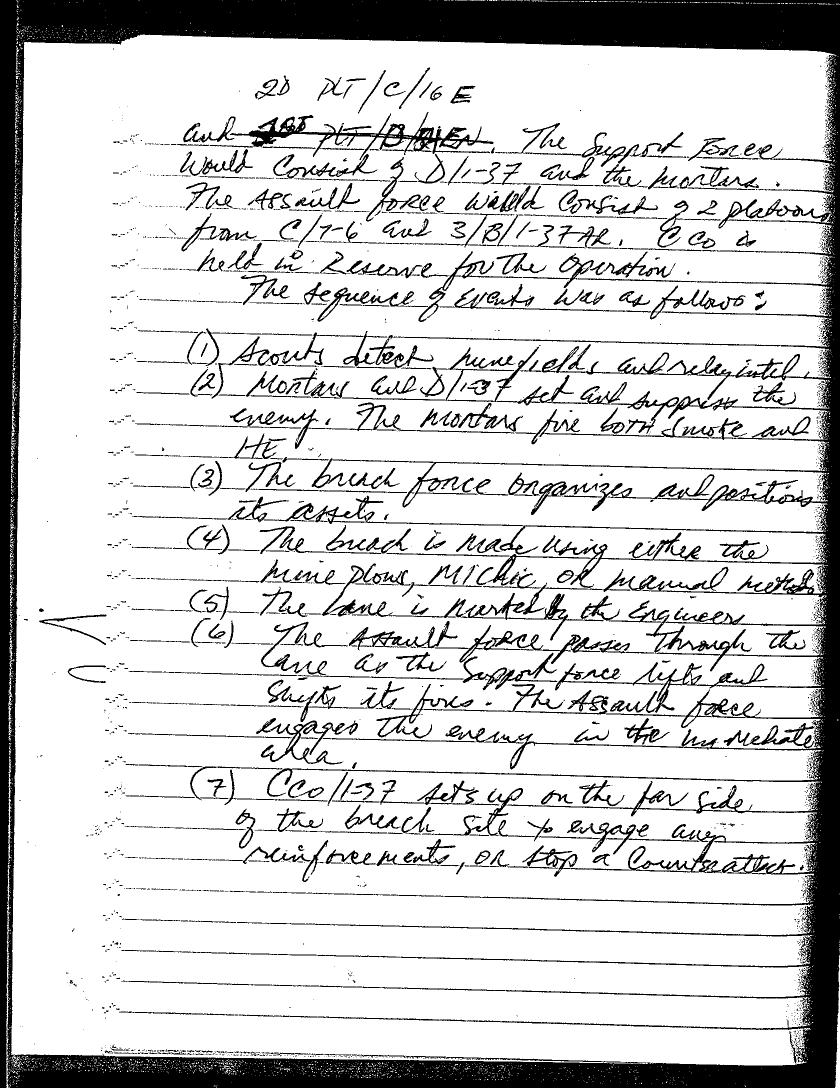 2D PLT/C/16 E
and 1ST PLT/B/ EN. The Support Force
Would Consist of D/1-37 and the mortars.
The Assault force would Consist of 2 platoons
from C/7-6 and 3/B/1-37 AR. C Co is
held in Reserve for the Operation.
The sequence of Events was as follows:
(1) Scouts detect minefields and relay intel.
(2) Mortars and D/1-37 set and suppress the
enemy. The mortars fire both Smoke and
HE.
(3) The breach force organizes and positions
its assets.
(4) The breach is made using either the
mine plows, MICLIC, OR manual methods
(5) The lane is marked by the Engineers
(6) The Assault force passes through the
lane as the Support force lifts and
Shifts its fires. The Assault force
engages the enemy in the immediate
area.
(7) C Co/1-37 sets up on the far side
of the breach site to engage any
reinforcements, OR stop a Counterattack.